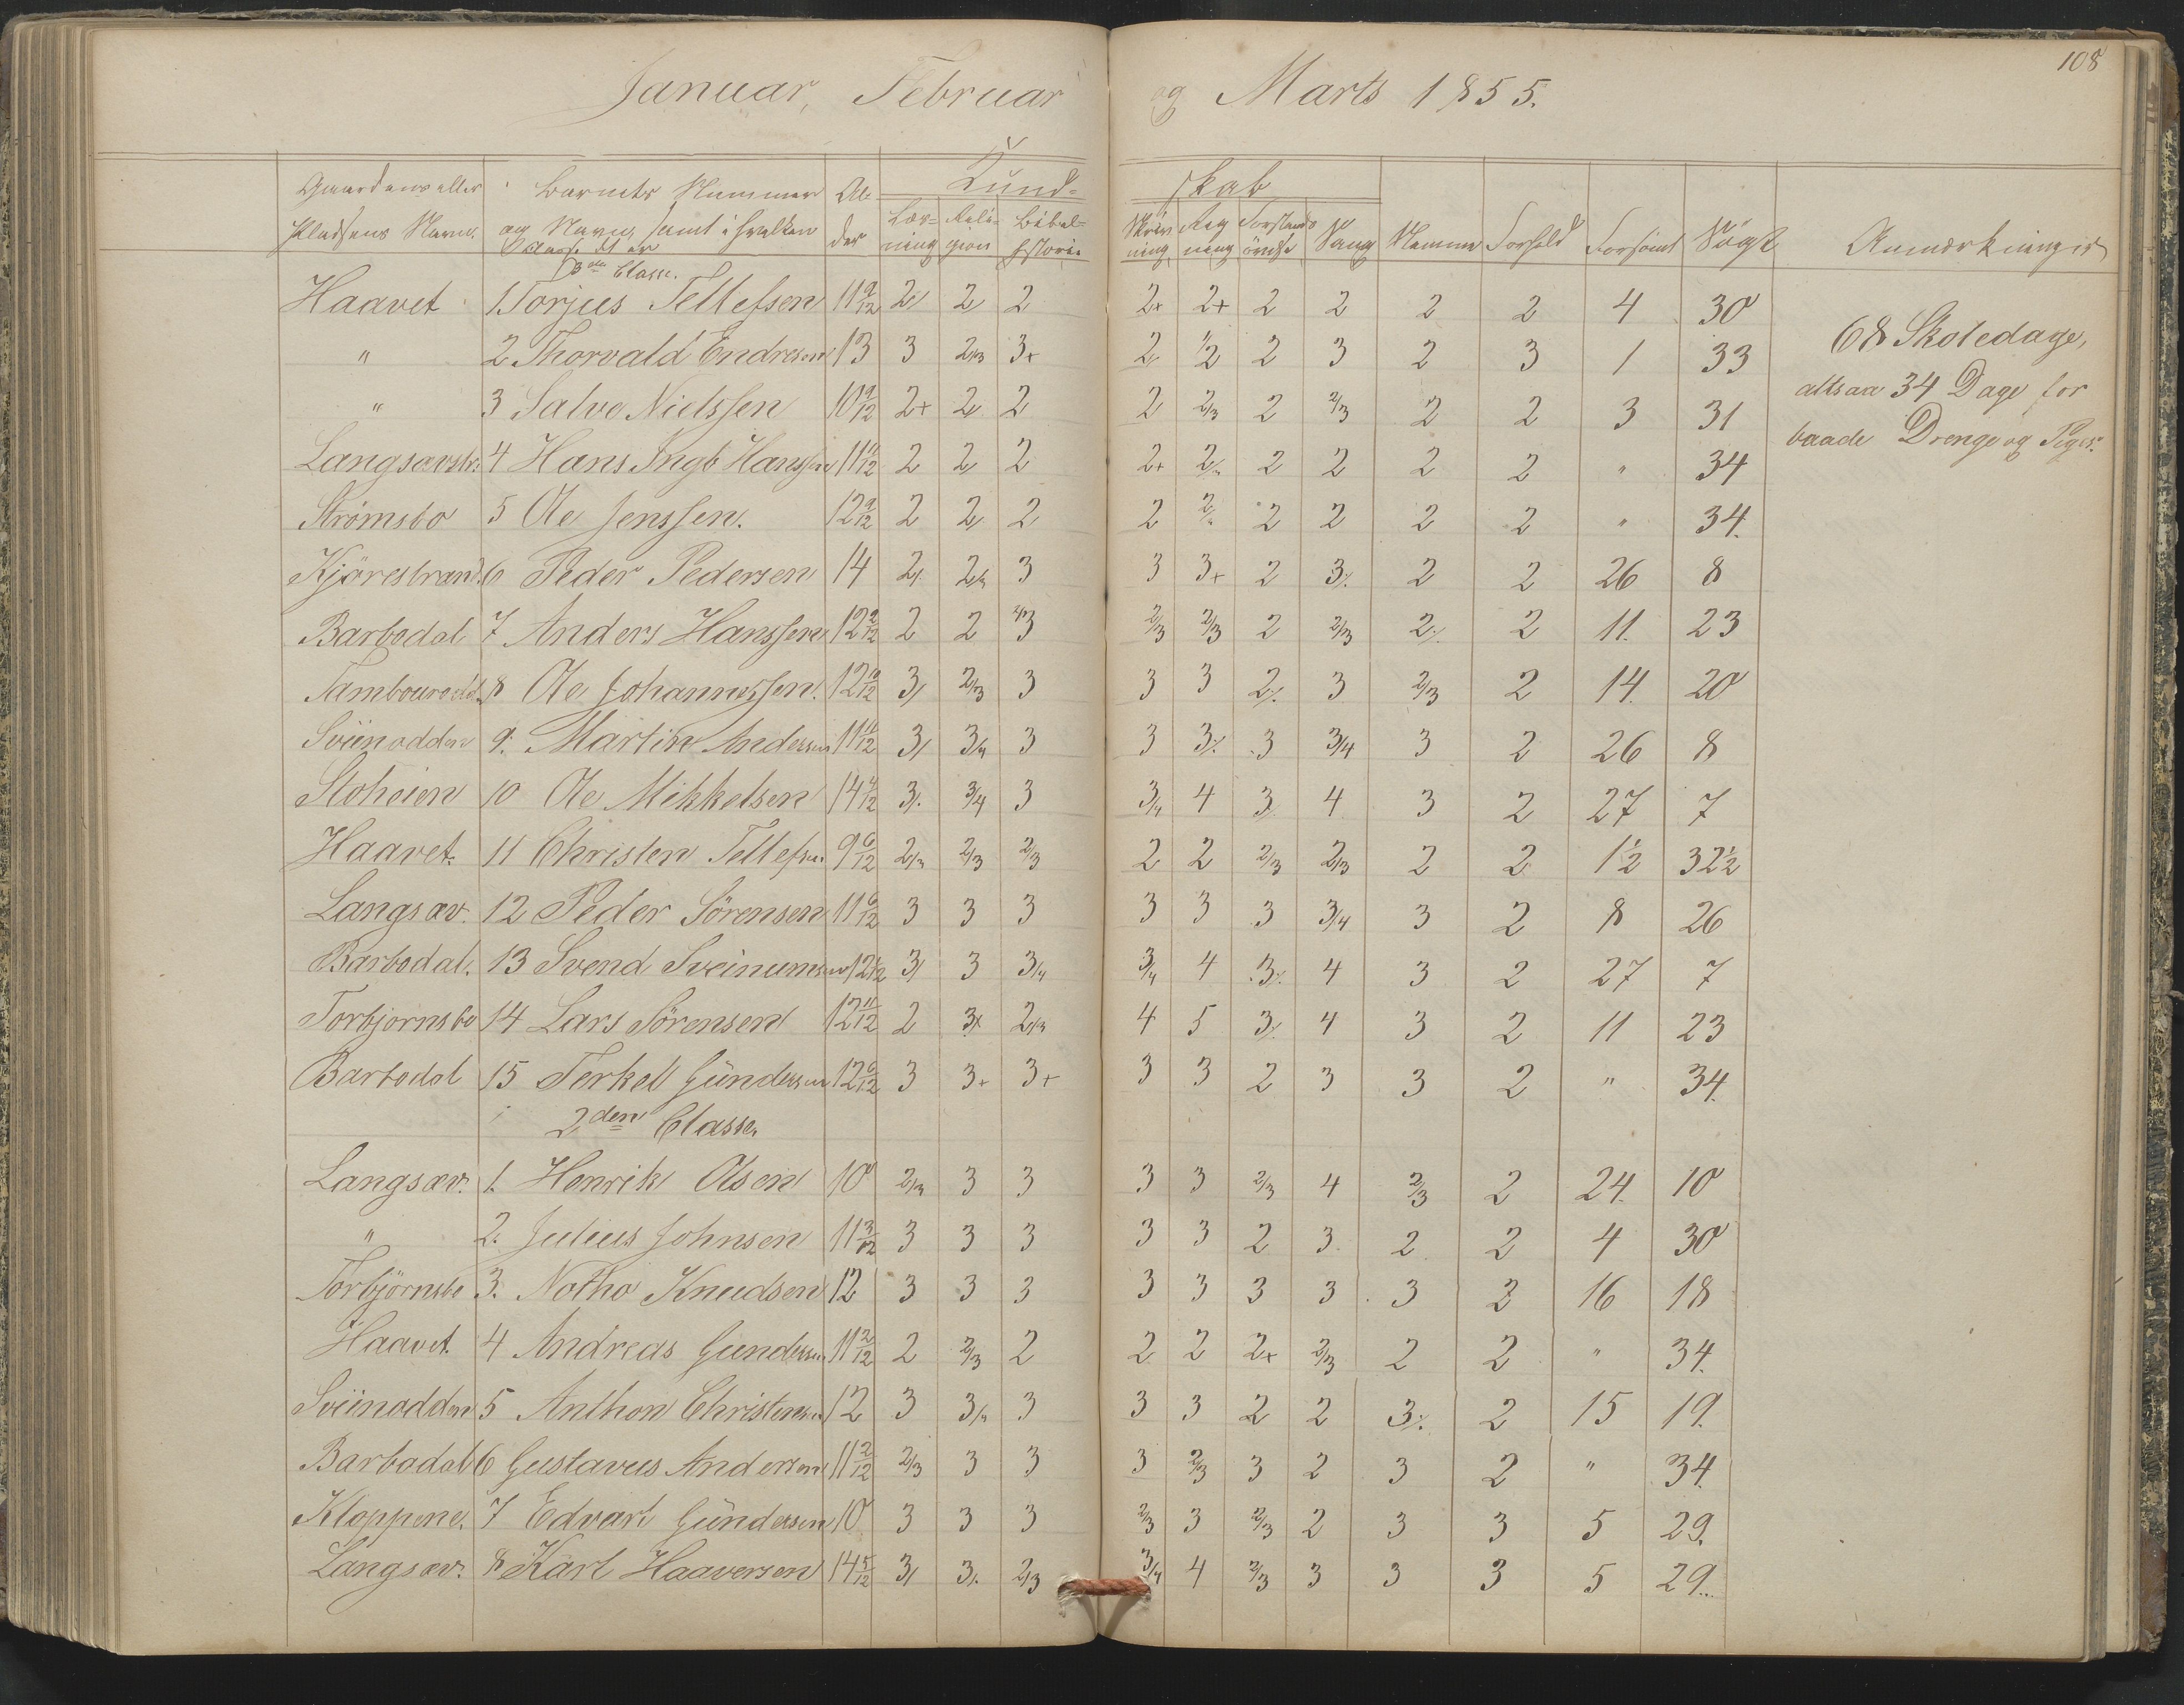 108
Januar, Februar og Marts 1855.
Gaardens eller Pladsens Navn. | Barnets Nummer og Navn, samt i hvilken Classe det er | Alder | Kundskab | Nemme | Forhold | Forsømt | Søgt | Anmærkninger
Læsning | Religion | Bibelhistorie | Skrivning | Regning | Sang
3die Classe.
Haavet 1. Torjus Tellefsen 11 9/12 2/ 2 2 2+ 2+ 2 2 2 2 4 30
" 2 Thorvald Endresen 13 3 2/3 3+ 2 1/2 2 3 2 3 1 33
" 3 Salve Nielssen 10 9/12 2+ 2 2 2 2/3 2 2/3 2 2 3 31
Langsævstr. 4 Hans Ingb Hanssen 11 11/12 2 2 2 2+ 2/" 2 2 2 2 " 34
Strømsbo 5 Ole Jenssen. 12 9/12 2 2 2 2 2/" 2 2 2 2 " 34.
Kjørestrand. 6 Peder Pedersen 14 2/. 2/3 3 3 3+ 2 3/. 2 2 26 8
Barbodal 7 Anders Hanssen 12 9/12 2 2 2/3 2/3 2/3 2 2/3 2/. 2 11. 23
8 Ole Johannessen. 12 10/12 3/ 2/3 3 3 3 2/. 3 2/3 2 14. 20
Sviinodden 9. Martin Anderssen 11 11/12 3/ 3/4 3 3 3/. 3 3/4 3 2 26 8
Stoheien 10 Ole Mikkelsen 14 4/12 3/. 3/4 3 3/4 4 3/. 4 3 2 27 7
Haavet. 11 Christen Tellefsen 9 6/12 2/3 2/3 2/3 2 2 2/3 2/3 2 2 1 1/2 32 1/2
Langsæv. 12 Peder Sörensen 11 6/12 3 3 3 3 3 3 3/4 3 2 8 26
Barbodal. 13 Svend Sveinumsen 12 1/12 3/ 3 3/4 3/4 4 3/. 4 3 2 27 7
Torbjornsbo 14 Lars Sörensen 12 11/12 2 3+ 2/3 4 5 3/. 4 3 2 11 23
Barbodal 15 Terkel Gündersen 12 6/12 3 3+ 3+ 3 3 2 3 3 2 " 34.
2den Classe.
Langsæv. 1. Henrik Olsen 10 2/3 3 3 3 3 2/3 4 2/3 2 24. 10
" 2. Julius Johnsen 11 3/12 3 3 3 3 3 2 3. 2. 2 4 30
Torbjörnsbo 3. Notho Knudsen 12 3 3 3 3 3 3 3 3 2 16 18
Haavet. 4 Andreas Gundersen 11 2/12 2 2/3 2 2 2 2+ 2/3 2 2 " 34.
Sviinodden 5 Anthon Christensen 12 3 3/4 3 3 3 2 2 3/. 2 15 19.
Barbodal 6 Gustavus Andersen 11 2/12 2/3 3 3 3 2/3 3 2 3 2 " 34.
Kloppene. 7 Edvart Gündersen 10 3 3 3 2/3 3 2/3 2 3 3 5 29.
Langsæv. 8 Karl Haaversen 14 5/12 3/ 3/. 2/3 3/4 4 2/3 3 3 3 5 29..
68 Skoledage,
altsaa 34 Dage for
baade Drenge og Piger.